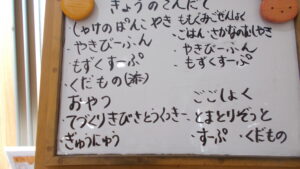 きょうのこんだて
しゃけのぱんこやき
・やきびーふん
・もずくすーぷ
・くだもの(添)
おやつ
・てづくりきびさとうくっきー
・ぎゅうにゅう
ごはん・さかなのむしやき
・やきびーふん
・もずくすーぷ
ごごしょく
・とまとりぞっと
・すーぷ ・くだもの